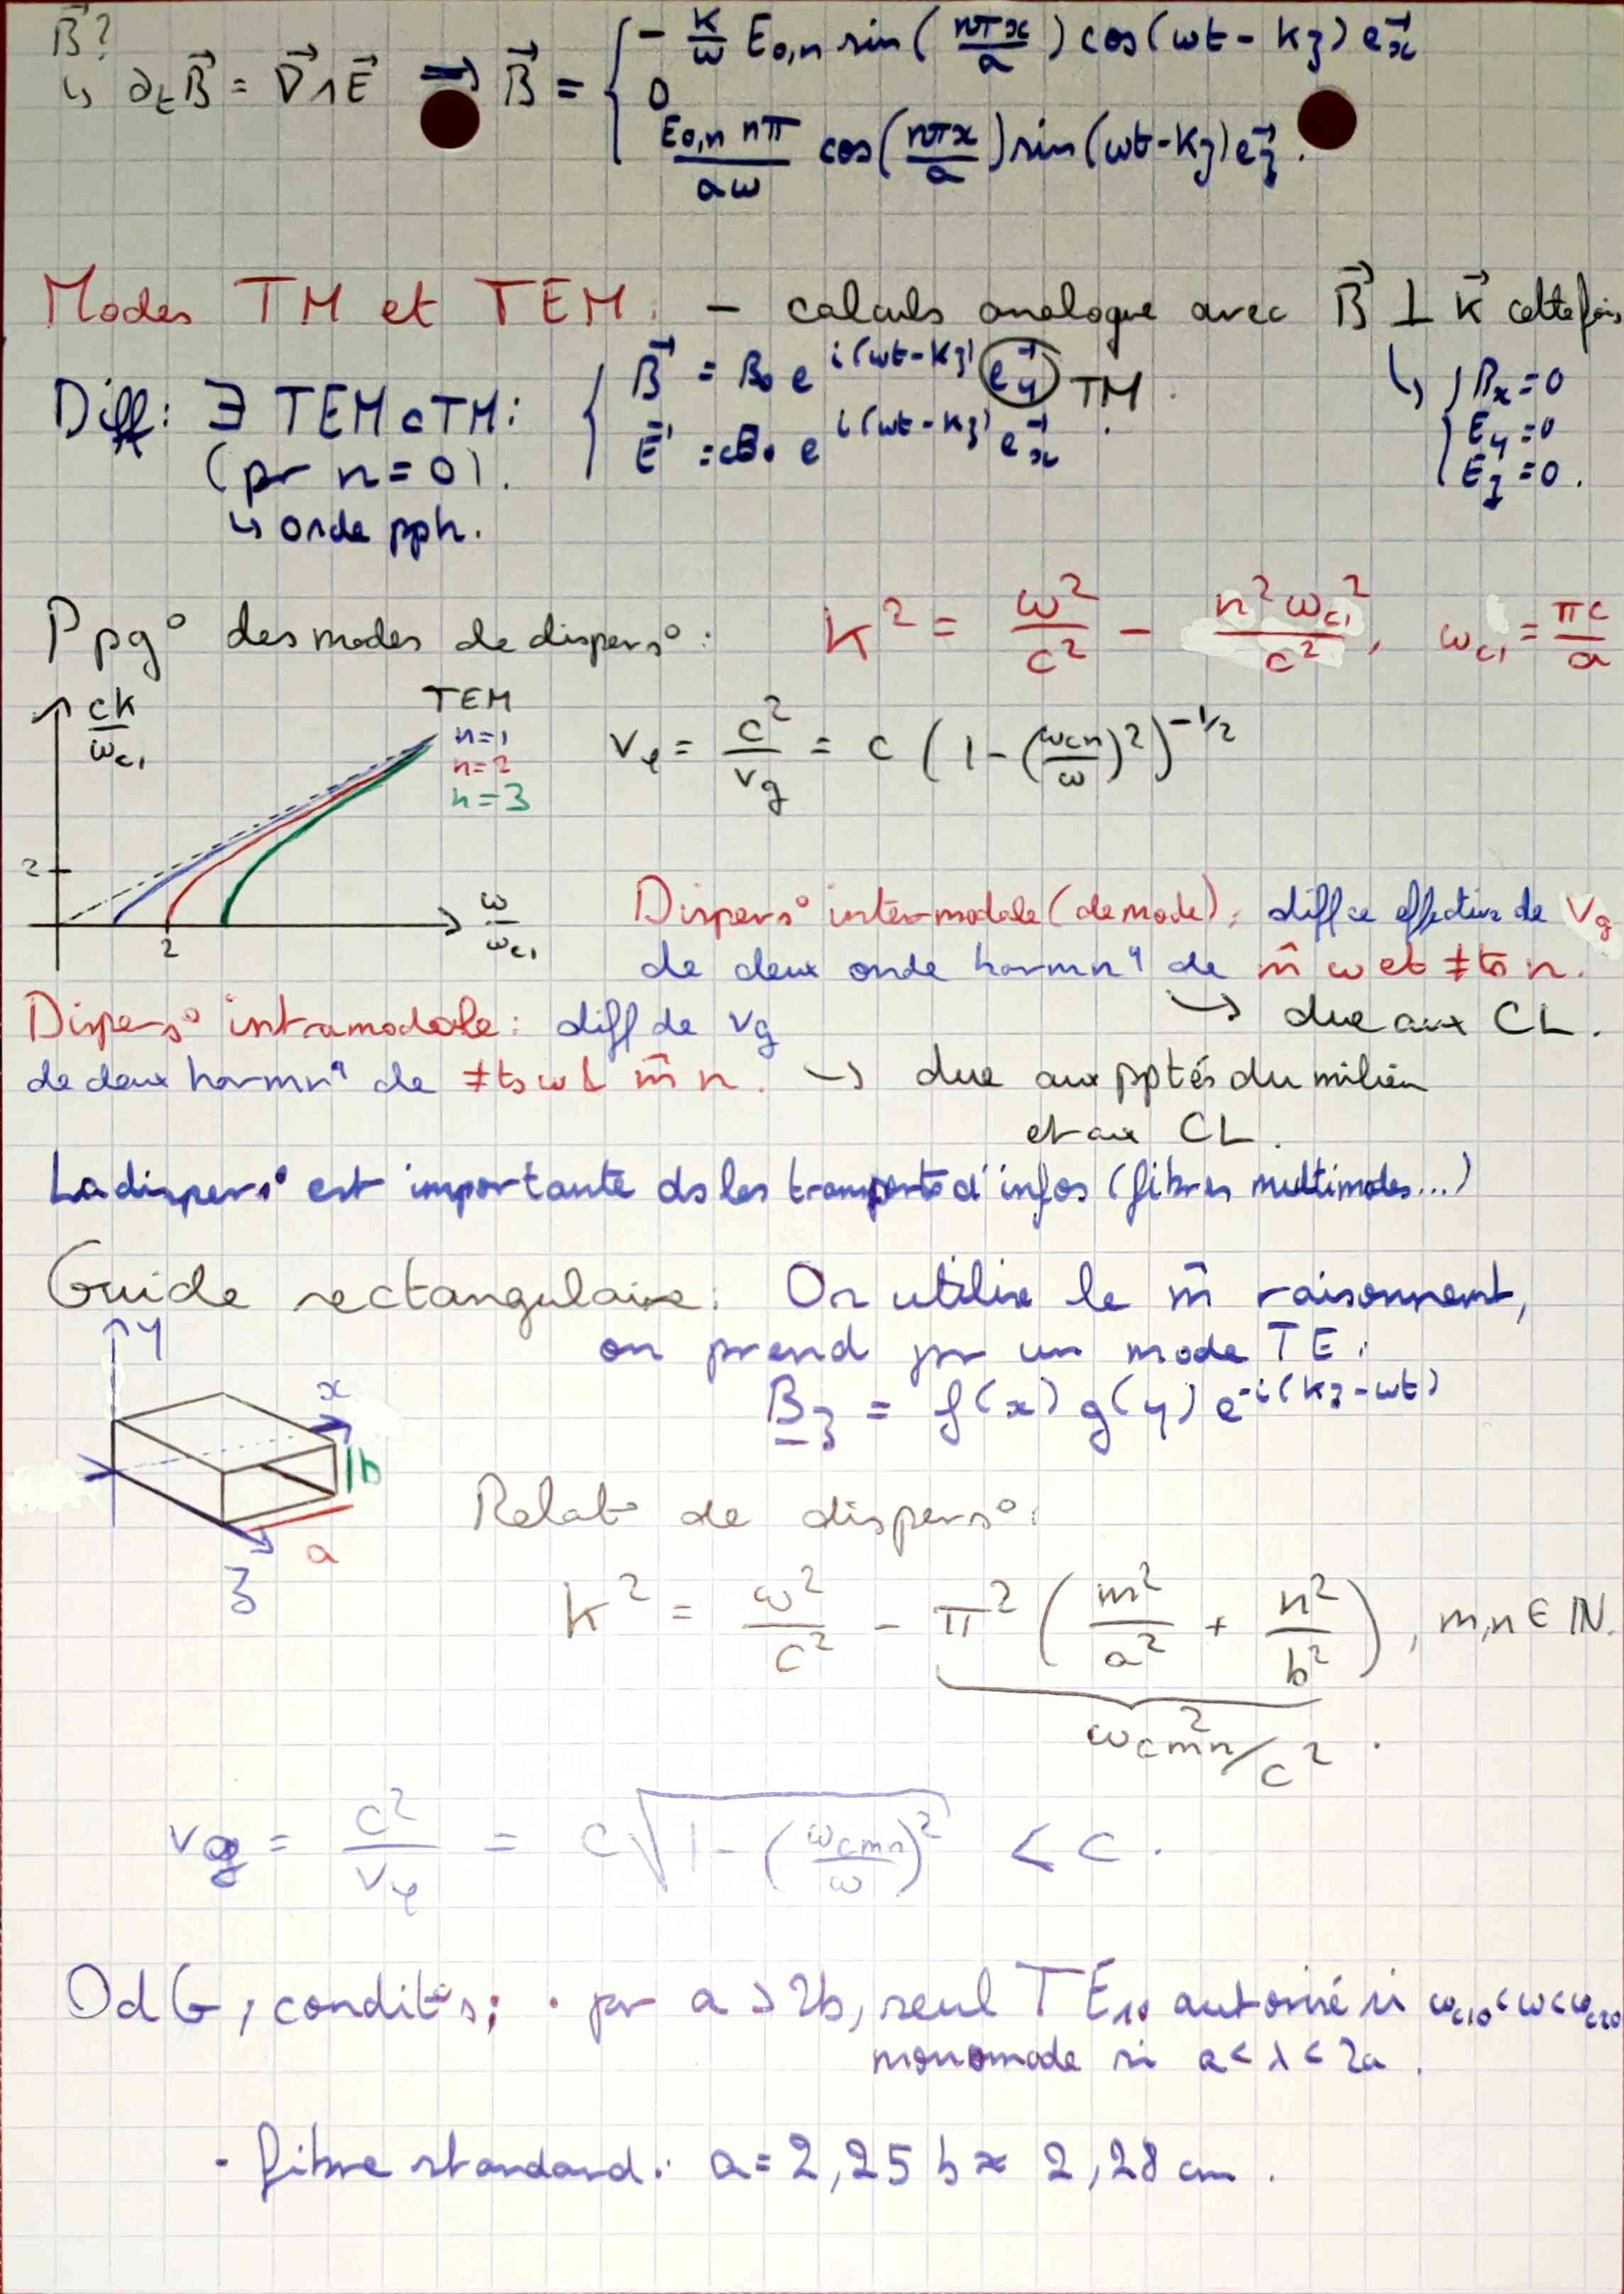 B⃗?
↳ ∂ₜB⃗ = ∇⃗∧E⃗ ⟹ B⃗ = { - k/ω E₀,ₙ sin(nπx/a) cos(ωt - kz) e⃗ₓ
0
E₀,ₙ nπ/aω cos(nπx/a) sin(ωt-kz) e⃗_z.
Modes TM et TEM: - calculs analogue avec B⃗ ⊥ k⃗ cette fois
↳ { Bₓ=0
E_y=0
E_z=0.
Diff: ∃ TEM c TM: { B⃗ = B₀ e^{i(ωt-kz)} e⃗_y TM.
(pr n=0). E⃗ = cB₀ e^{i(ωt-kz)} e⃗ₓ.
↳ onde pph.
Ppg° des modes de dispers°: k² = ω²/c² - n²ω_{c1}²/c², ω_{c1} = πc/a
ck/ω_{c1}
TEM
n=1
n=2
n=3
2
2
ω/ω_{c1}
v_φ = c²/v_g = c (1-(ω_{cn}/ω)²)^{-1/2}
Dispers° inter-modale (de mode): diffce effective de v_g
de deux onde harmn^q de m̂ ω et ≠ts n.
→ due aux CL.
Dispers° intramodale: diff de v_g
de deux harmn^q de ≠ts ω & m̂ n. → due aux pptés du milieu
et aux CL.
La dispers° est importante ds les transports d'infos (fibres multimodes...)
Guide rectangulaire: On utilise le m̂ raisonnement,
on prend pr un mode TE:
B_z = f(x) g(y) e^{-i(kz-ωt)}
y
x
b
a
z
Relat° de dispers°:
k² = ω²/c² - π² (m²/a² + n²/b²), m,n ∈ ℕ.
ω_{cmn}²/c².
v_g = c²/v_φ = c√(1-(ω_{cmn}/ω)²) < c.
OdG, condit°s; · pr a > 2b, seul TE₁₀ autorisé si ω_{c10}<ω<ω_{c20}
monomode si a < λ < 2a.
- fibre standard: a = 2,25 b ≈ 2,28 cm.